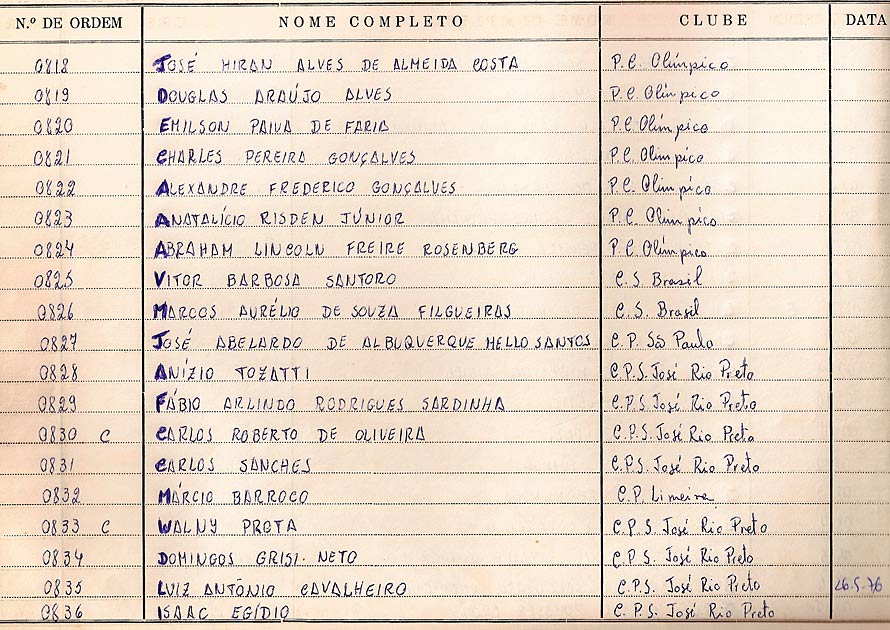 N.º DE ORDEM NOME COMPLETO CLUBE DATA
0818 JOSÉ HIRAN ALVES DE ALMEIDA COSTA P.C. Olímpico
0819 DOUGLAS ARAÚJO ALVES P.C. Olímpico
0820 EMILSON PAIVA DE FARIA P.C. Olímpico
0821 CHARLES PEREIRA GONÇALVES P.C. Olímpico
0822 ALEXANDRE FREDERICO GONÇALVES P.C. Olímpico
0823 ANATALÍCIO RISDEN JÚNIOR P.C. Olímpico
0824 ABRAHAM LINCOLN FREIRE ROSENBERG P.C. Olímpico
0825 VITOR BARBOSA SANTORO C.S. Brasil
0826 MARCOS AURÉLIO DE SOUZA FILGUEIRAS C.S. Brasil
0827 JOSÉ ABELARDO DE ALBUQUERQUE MELLO SANTOS C.P. São Paulo
0828 ANÍZIO TOZATTI C.P.S. José Rio Preto
0829 FÁBIO ARLINDO RODRIGUES SARDINHA C.P.S. José Rio Preto
0830 C CARLOS ROBERTO DE OLIVEIRA C.P.S. José Rio Preto
0831 CARLOS SANCHES C.P.S. José Rio Preto
0832 MÁRCIO BARROCO C.P. Limeira
0833 C WALNY PROTA C.P.S. José Rio Preto
0834 DOMINGOS GRISI NETO C.P.S. José Rio Preto
0835 LUIZ ANTÔNIO CAVALHEIRO C.P.S. José Rio Preto 26-5-76
0836 ISAAC EGÍDIO C.P.S. José Rio Preto